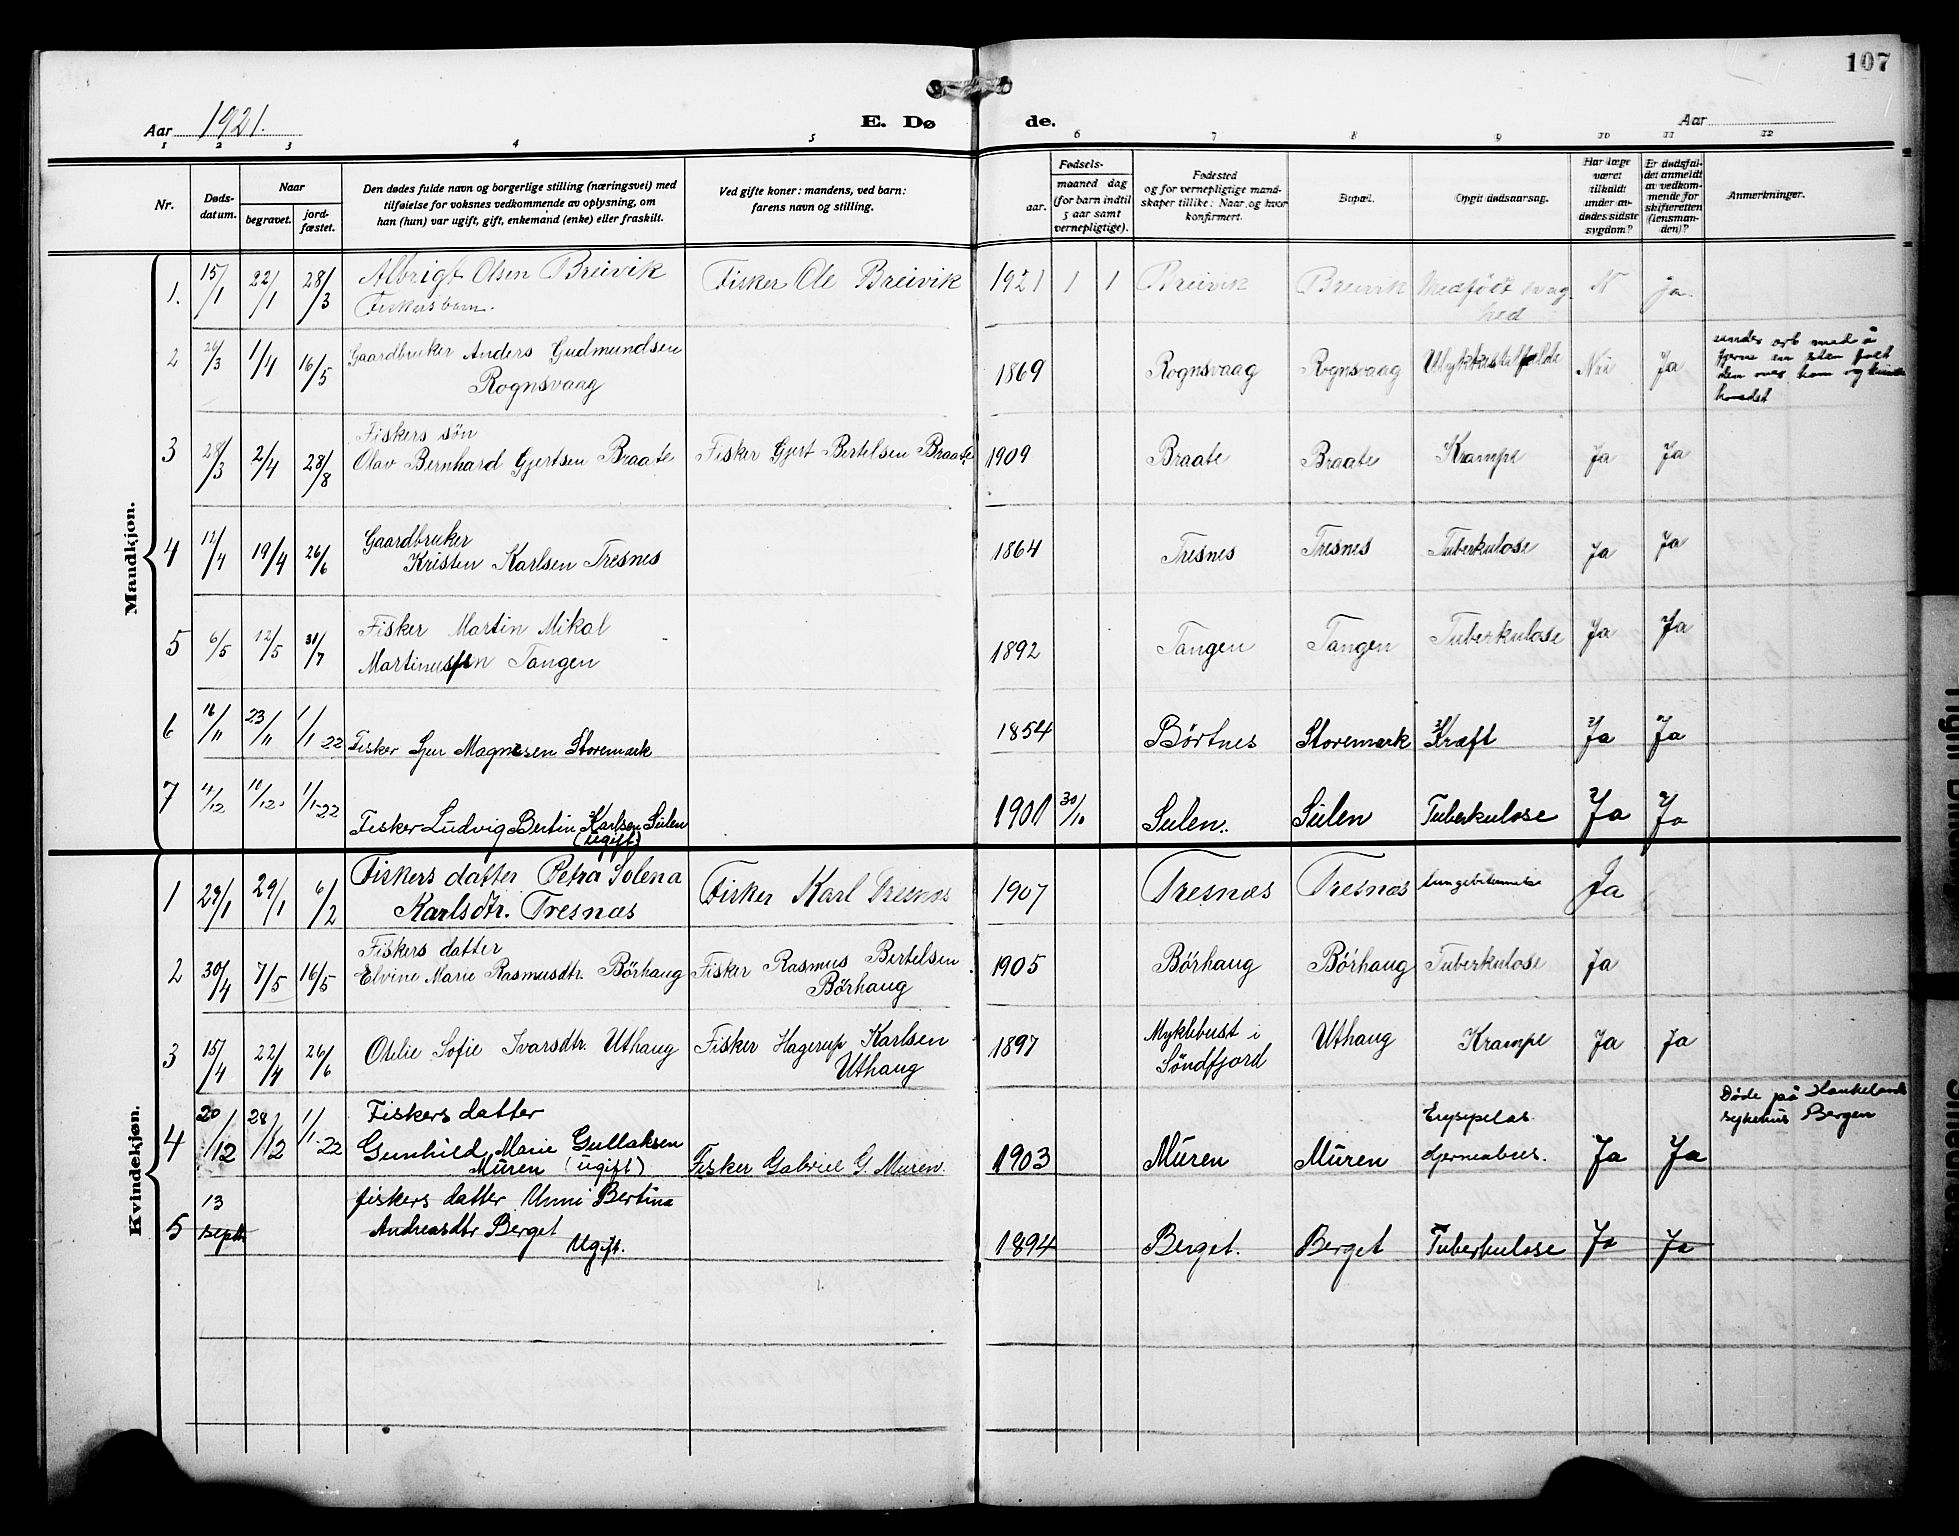 107
Aar 1921. E. Dø de. Aar
1 2 3 4 5 6 7 8 9 10 11 12
Nr. Døds-datum. Naar begravet. jord-fæstet. Den dødes fulde navn og borgerlige stilling (næringsvei) med tilføielse for voksnes vedkommende av oplysning, om han (hun) var ugift, gift, enkemand (enke) eller fraskilt. Ved gifte koner: mandens, ved barn: farens navn og stilling. Fødsels- aar. maaned dag (for barn indtil 5 aar samt vernepligtige). Fødested og for vernepligtige mand-skaper tillike: Naar og hvor konfirmert. Bopæl. Opgit dødsaarsag. Har læge været tilkaldt under av-dødes sidste sygdom? Er dødsfal-det anmeldt av vedkom-mende for skifteretten (lensman-den)? Anmerkninger.
Mandkjøn.
1. 15/1 22/1 28/3 Albrigt Olsen Breivik Fiskersbarn. Fisker Ole Breivik 1921 1 1 Breivik Breivik Medfödt svaghed N ja.
2 26/3 1/4 16/5 Gaardbruker Anders Gudmundsen Rognsvaag 1869 Rognsvaag Rognsvaag Ulykkestilfælde Nei Ja under arb med å fjerne en sten falt den over ham og
3 28/3 2/4 28/8 Fiskers søn Olav Bernhard Gjertsen Braate Fisker Gjert Bertelsen Braate 1909 Braate Braate Krampe Ja Ja
4 12/4 19/4 26/6 Gaardbruker Kristen Karlsen Tresnes 1864 Tresnes Tresnes Tuberkulose Ja Ja
5 6/5 12/5 31/7 Fisker Martin Mikal Martinussen Tangen 1892 Tangen Tangen Tuberkulose Ja Ja
6 16/11 23/11 1/1-22 Fisker Sjur Magnesen Storemark 1854 Børtnes Storemark Kræft Ja Ja
7 4/12 10/12. 1/1-22 Fisker Ludvig Bertin Karlsen Sulen (ugift) 1901 30/10 Sulen. Sulen Tuberkulose Ja Ja
Kvindekjøn.
1 29/1 6/2 Fiskers datter Petra Solena Karlsdtr. Tresnæs Fisker Karl Tresnæs 1907 Tresnæs Tresnæs Lungebetennelse Ja
2 30/4 7/5 16/5 Fiskers datter Elvine Marie Rasmusdtr. Börhaug Fisker Rasmus Bertelsen Börhaug 1905 Börhaug Börhaug Tuberkulose Ja
3 15/4 22/4 26/6 Otelie Sofie Ivarsdtr. Uthaug Fisker Hagerup Karlsen Uthaug 1897 Myklebust i Söndfjord Uthaug Krampe Ja Ja
4 20/12 28/12 1/1-22 Fiskers datter Gunhild Marie Gullaksen Muren (ugift) Fisker Gabriel G. Muren. 1903 Muren Muren Erysypelas Ja Ja Döde på Haukelands sykehus Bergen
5 13 Sept. fiskers datter Unni Bertina Andreasdtr Berget Ugift. 1894 Berget. Berget Tuberkulose Ja Ja